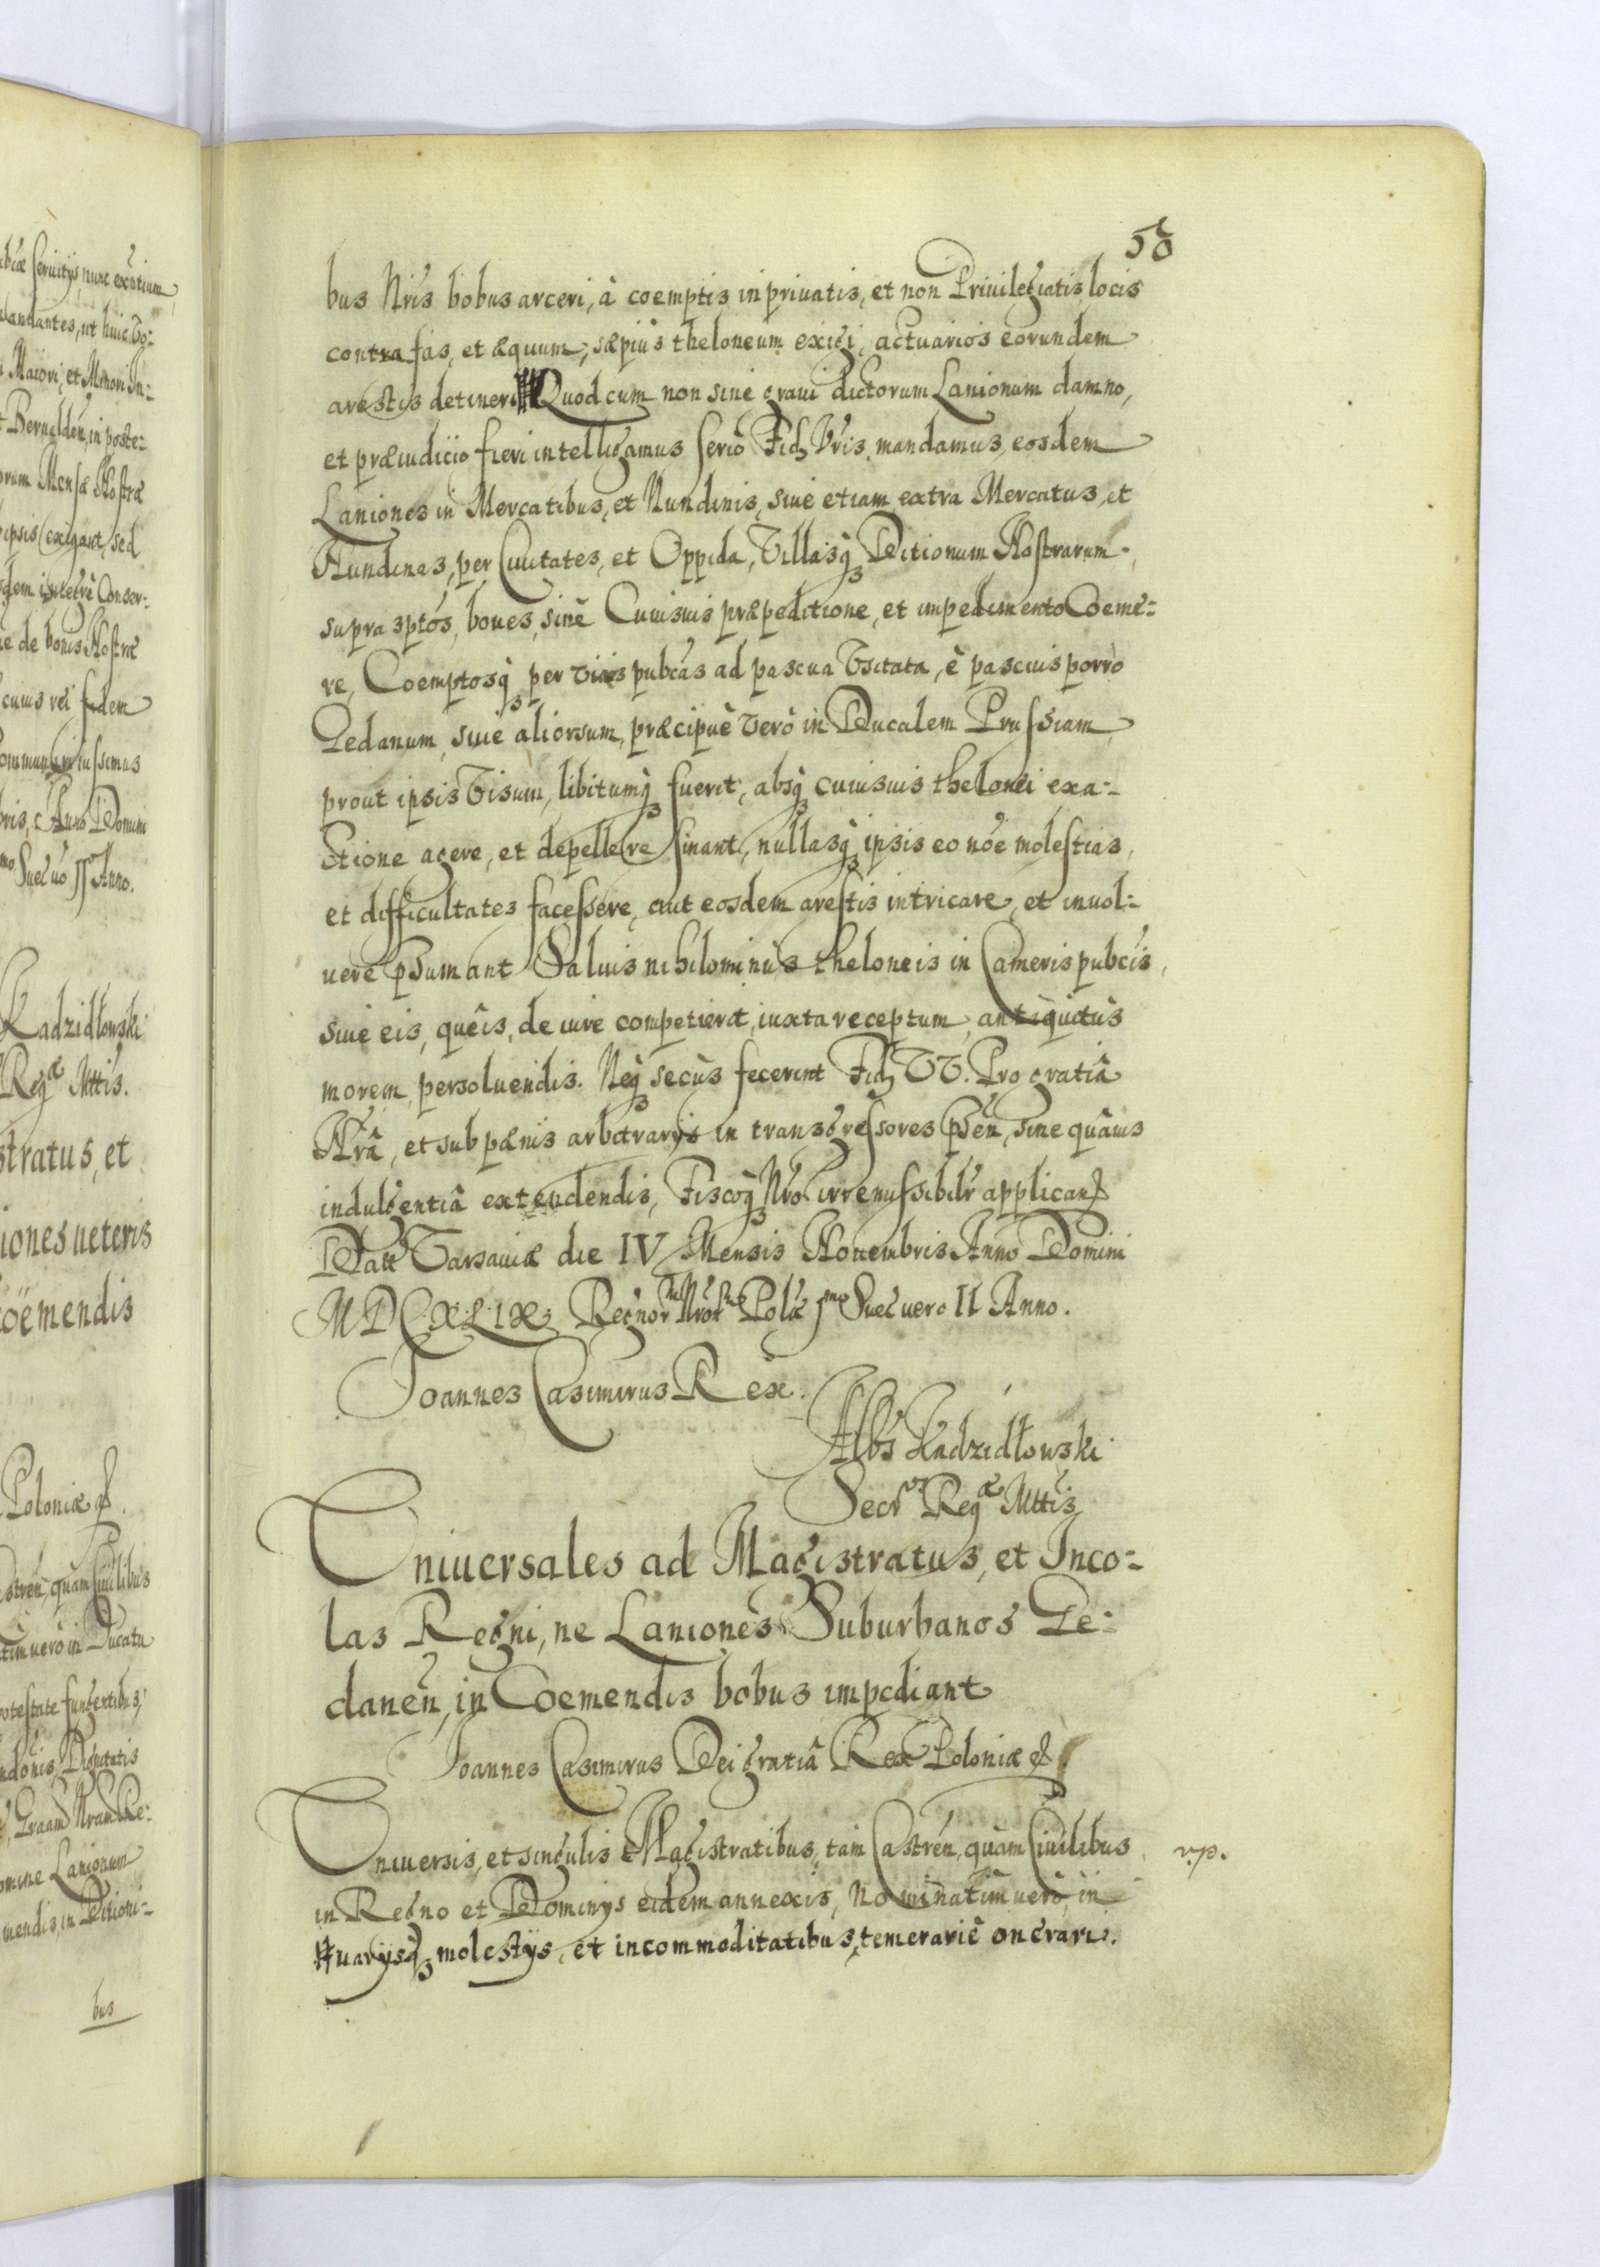 58
bus Nris bobus arceri, à coemptis in priuatis, et non Priuilegiatis, locis
contra fas, et æquum, sæpiùs theloneum exigi, actuarios eorundem
arestis detineri # Quod cum non sine graui dictorum Lanionum damno,
et præiudicio fieri intelligamus seriò Fid Vris mandamus, eosdem
Laniones in Mercatibus, et Nundinis, siue etiam extra Mercatus, et
Nundinas, per Ciuitates, et Oppida, Villasq₃ Ditionum Nostrarum
supra sptos, boues, sine Cuiusuis præpeditione, et impedimento Coeme-
re, Coemptosq₃ per vias pubcas ad pascua Vsitata, è pascuis porro
Gedanum, siue aliorsum, præcipuè verò in Ducalem Prussiam
prout ipsis Visum, libitumq₃ fuerit, absq₃ cuiusuis thelonei exa-
ctione agere, et depellere sinant, nullasq₃ ipsis eo nôe molestias,
et difficultates facessere, aut eosdem arestis intricare, et inuol-
uere psumant Saluis nihilominùs theloneis in Cameris pubcis,
siue eis, queis, de iure competierit, iuxta receptum, antiquitùs
morem, persoluendis. Neq₃ secùs fecerint Fid VV. Pro gratiâ
Nrâ, et sub pænis arbitrarijs in transgressores psen, sine quâuis
indulgentiâ extendendis, Fiscoq₃ Nro irremissibilr applican
Datt Varsauiæ die IV Mensis Nouembris Anno Domini
MDCXLIX Regnor Nror Polæ Imo Suec vero II Anno.
Joannes Casimirus Rex.
Albs Kadzidłowski
Secr Reg æ Mttis
Vniuersales ad Magistratus, et Inco-
las Regni, ne Laniones Suburbanos Ge-
danen, in Coemendis bobus impediant
Joannes Casimirus Dei gratiâ Rex Poloniæ
Vniuersis, et singulis Magistratibus, tam Castren, quam Ciuilibus
in Regno et Dominijs eidem annexis, Nominatim verò, in
# uarijsq₃ molestijs, et incommoditatibus, temerariè onerari.